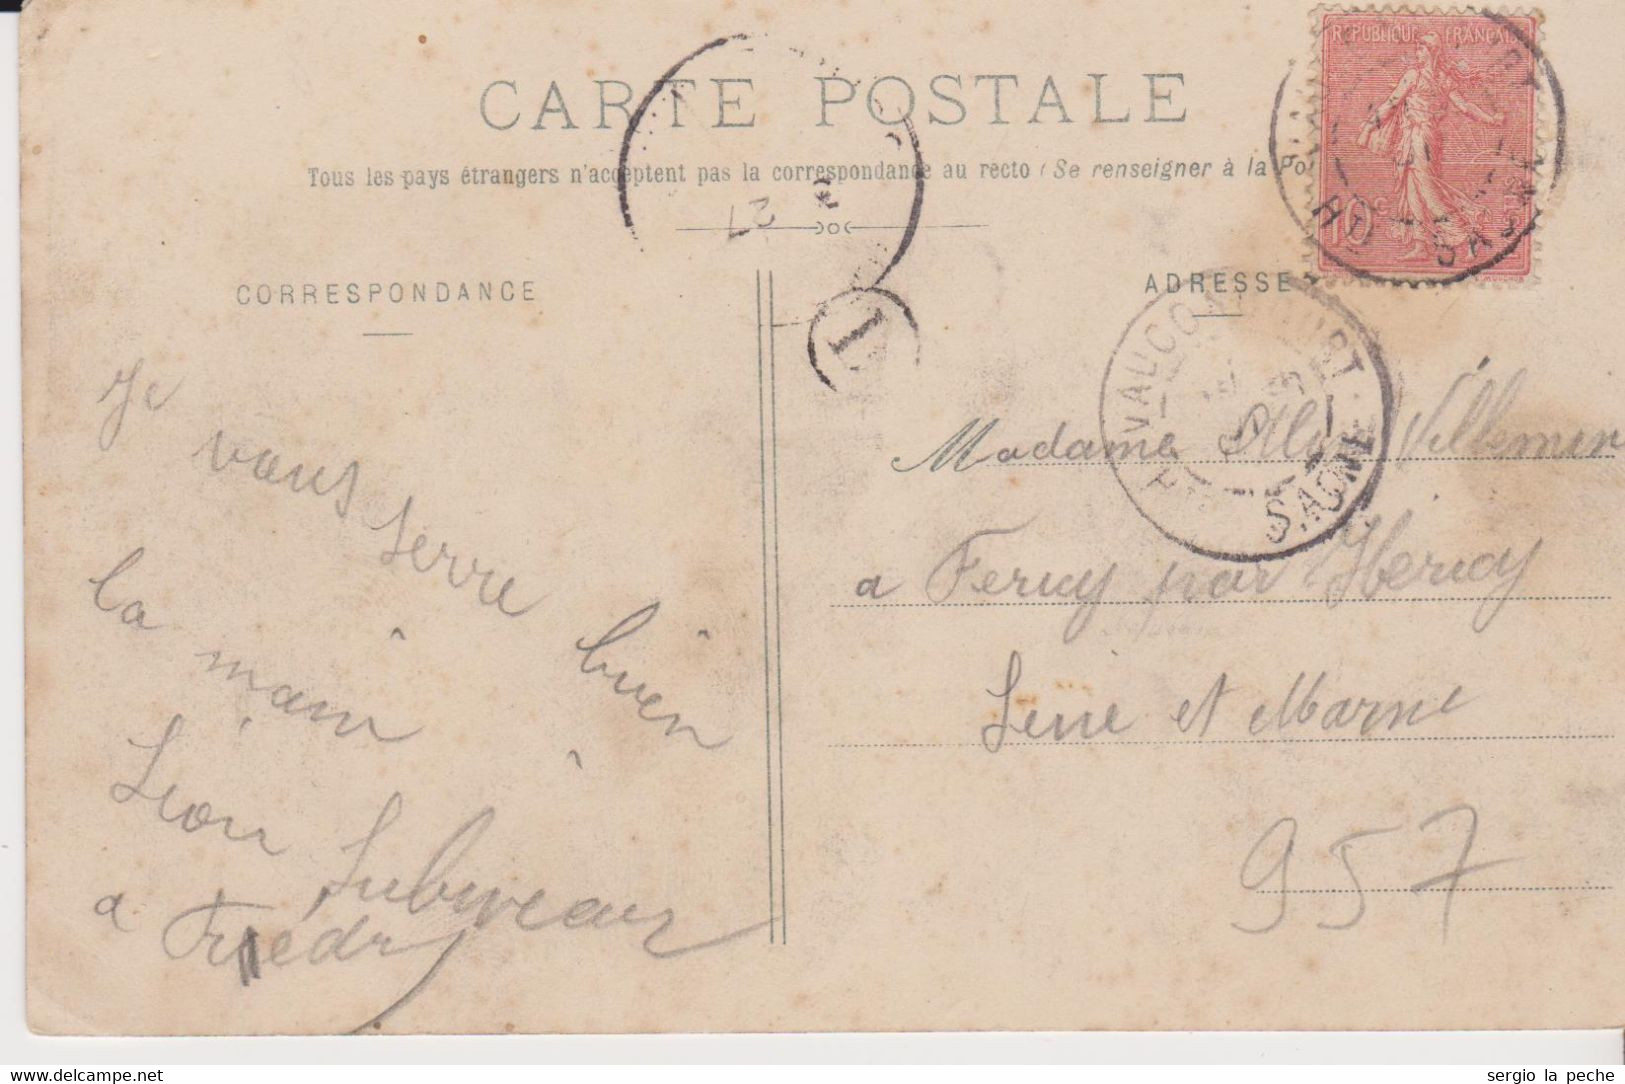 CARTE POSTALE
Tous les pays étrangers n'acceptent pas la correspondance au recto (Se renseigner à la Po
CORRESPONDANCE
ADRESSE
RÉPUBLIQUE FRANÇAI
10 c
SAONE
27
VAUCON
Hte SAONE
Je
vous serre bien
la main
Léon
a
Madame Villemin
a Fericy par Héricy
Seine et Marne
957
www.delcampe.net
sergio la peche